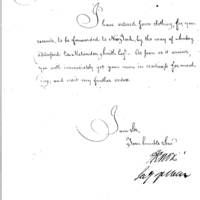 I have ordered some clothing, for your
recruits, to be forwarded to New York, by the way of
addressed to Melancton Smith Esqr. As soon as it arrives,
you will immediately get your men in readiness for march-
ing, and wait my further orders.
I am Sir,
Your humble Serv
HKnox